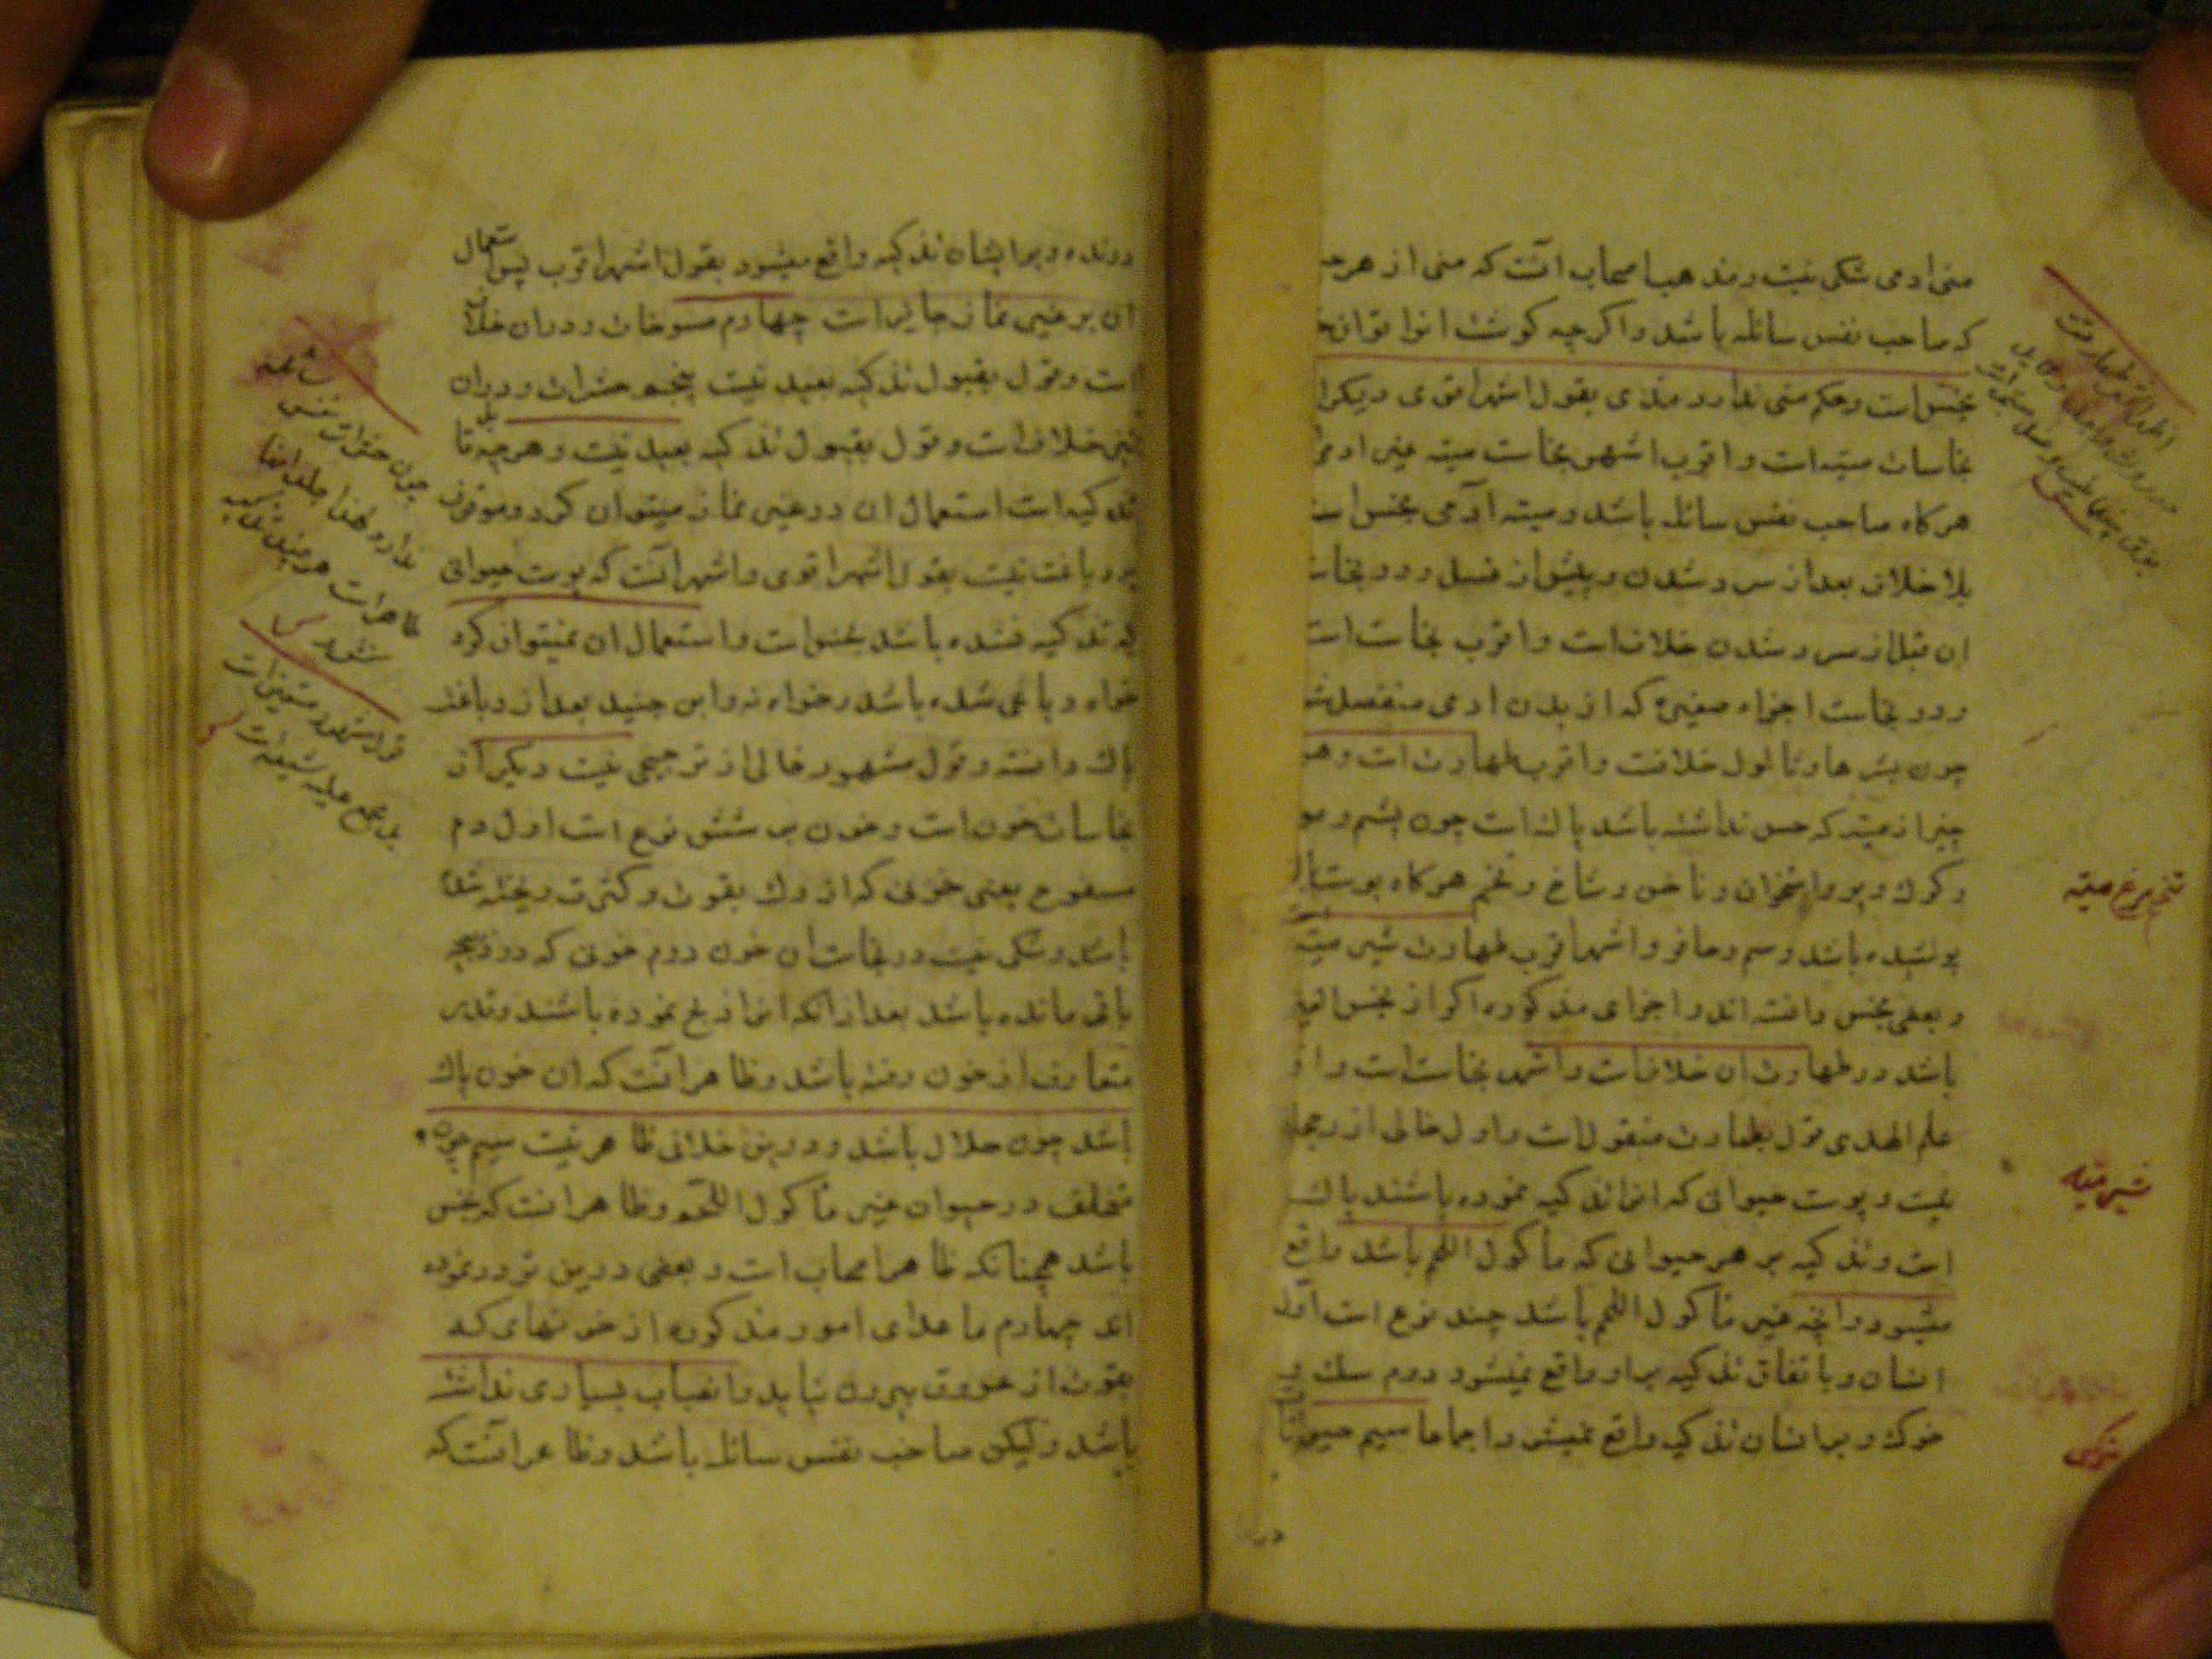 منی ادمی شکی نیست و مذهب اصحاب آنست که منی از هر
که صاحب نفس سائله باشد و اکرچه کوشت انرا توان
نجس است و حکم منی ندارد مذی بقول اشهر اقوی دیکر از
نجاسات میته است و اقرب اشهر نجاست میته غیر ادمی
هر کاه صاحب نفس سائله باشد و میته آدمی نجس است
بلا خلاف بعد از سرد شدن و پیش از غسل و در نجاست
ان قبل از سرد شدن خلاف است و اقرب نجاست است
و در نجاست اجزاء صغیره که از بدن ادمی منفصل
چون بثرها و ثالول خلافست و اقرب طهارت است و هر
چیز از میته که حس نداشته باشد پاک است چون پشم و مو
و کرک و پر و استخوان و ناخن و شاخ و تخم هر کاه پوست
پوشیده باشد و سم و حافر و اشهر اقرب طهارت شیر میته
و بعضی نجس دانسته اند و اجزای مذکوره اکر از نجس العین
باشد در طهارت ان خلافست و اشهر نجاست است و از
علم الهدی قول بطهارت منقولست و اول خالی از رجحان
نیست و پوست حیوانی که انرا تذکیه نموده باشند پاک
است و تذکیه بر هر حیوانی که ماکول اللحم باشد واقع
میشود و انچه غیر ماکول اللحم باشد چند نوع است اول
انسان و باتفاق تذکیه بر او واقع نمیشود دوم سک و
خوک و بر ایشان تذکیه واقع نمیشود اجماعا سیم حیوانات
تخم مرغ میته
شیر میته
درنده
درنده و بر ایشان تذکیه واقع میشود بقول اشهر اقرب پس استعمال
ان بر غیر نماز جایز است چهارم مسوخات و دران خلاف
است و قول بقبول تذکیه بعید نیست پنجم حشرات و دران
نیز خلاف است و قول بقبول تذکیه بعید نیست و هر چه قابل
تذکیه است استعمال ان در غیر نماز میتوان کرد و موقوف
بر دباغت نیست بقول اشهر اقوی و اشهر آنست که پوست حیوانی
که تذکیه نشده باشد نجس است و استعمال ان نمیتوان کرد
خواه دباغی شده باشد و خواه نه و ابن جنید بعد از دباغت
پاک دانسته و قول مشهور خالی از ترجیحی نیست دیکر از
نجاسات خون است و خون بر شش نوع است اول دم
مسفوح یعنی خونی که از رک بقوت و کثرت ریخته شده
باشد و شکی نیست در نجاست ان خون دوم خونی که در ذبیحه
باقی مانده باشد بعد از انکه انرا ذبح نموده باشند و قدر
متعارف از خون رفته باشد و ظاهر آنست که ان خون پاک
باشد چون حلال باشد و درین خلافی ظاهر نیست سیم خون
متخلف در حیوان غیر ماکول اللحم و ظاهر انست که نجس
باشد همچنانکه ظاهر اصحاب است و بعضی درین تردد نموده
اند چهارم ما عدای امور مذکوره از خونهای که
بقوت از عروق بیرون نیاید و انصباب بسیاری نداشته
باشد و لیکن صاحب نفس سائله باشد و ظاهر آنست که
چون حشرات نفس سائله
ندارد و لهذا جلد انها
طاهر است هر چند تذکیه
نشود